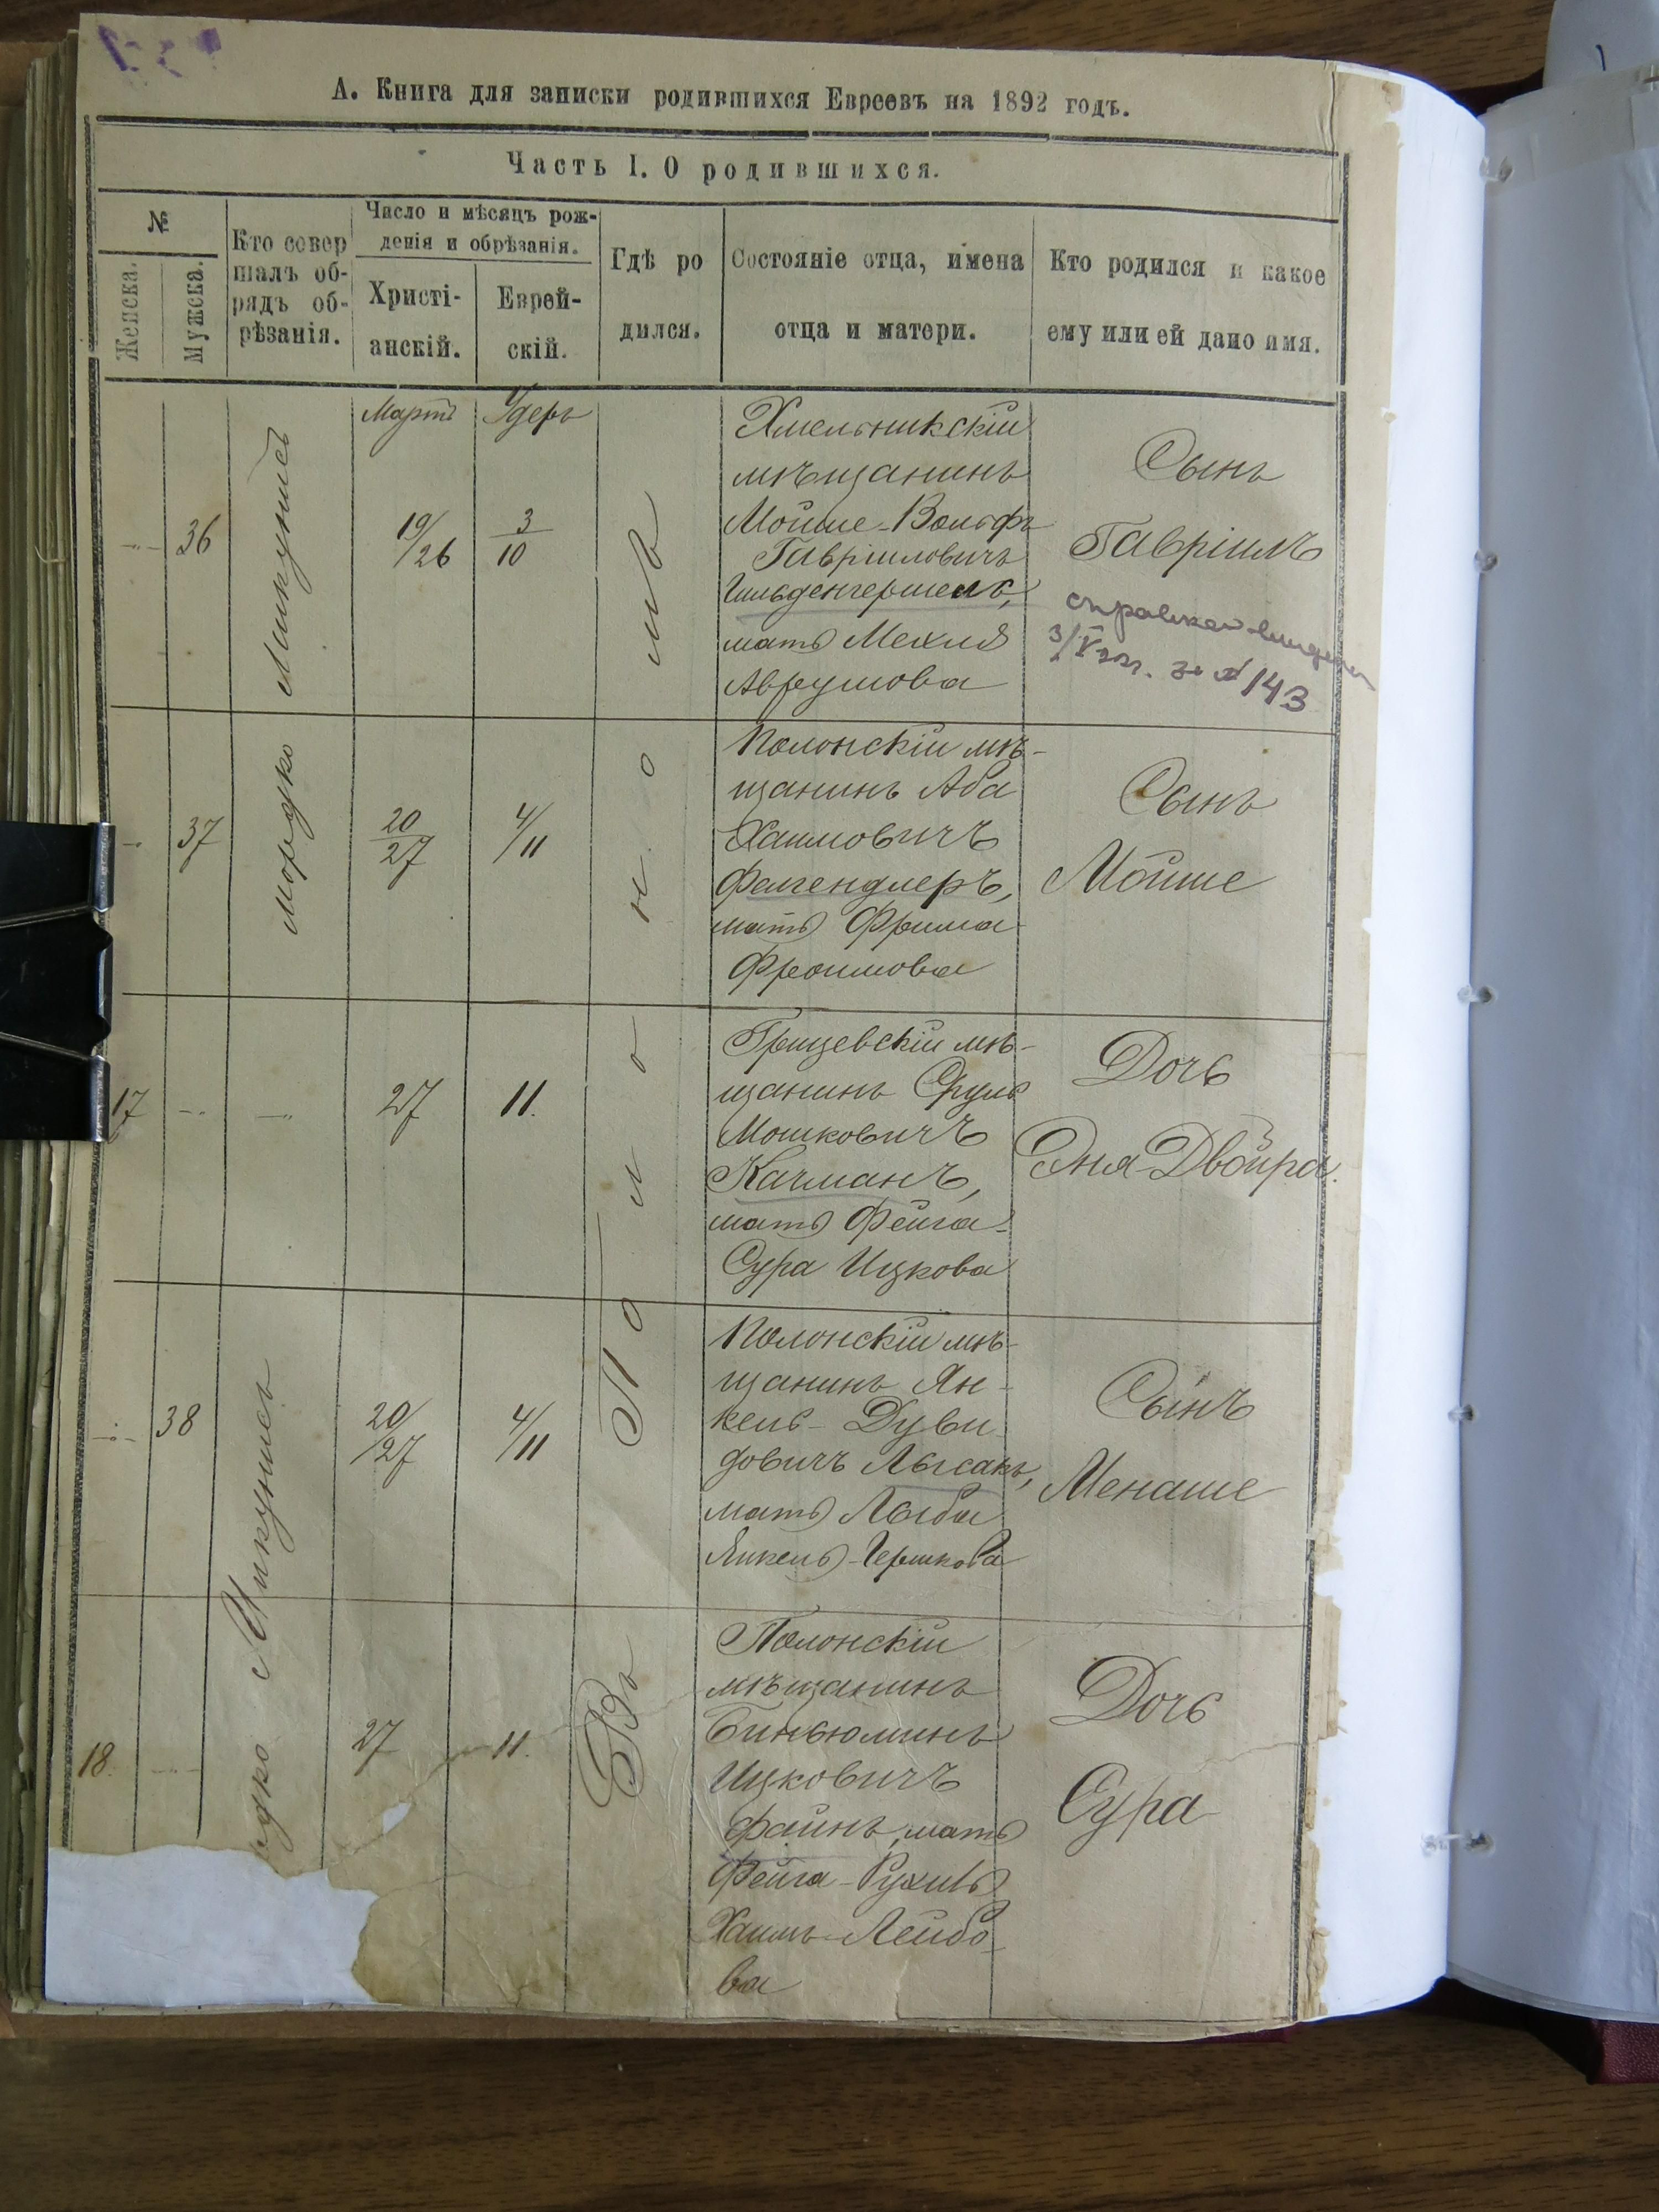 А. Книга для записки родившихся Евреевъ на 1892 годъ.
Часть I. О родившихся.
№
Женска.
Мужска.
Кто совер
шалъ об-
рядъ об-
рѣзанія.
Число и мѣсяцъ рож-
денія и обрѣзанія.
Христі-
анскій.
Еврей-
скій.
Гдѣ ро
дился.
Состояніе отца, имена
отца и матери.
Кто родился и какое
ему или ей дано имя.
Въ Полонномъ
Мартъ
Удеръ
36
Микунисъ
19/26
3/10
Хмельникскій
мѣщанинъ
Мойше-Вольфъ
Гавріиловичъ
мать Мехля
Аврумова
Сынъ
Гавріилъ
3/V 22г. за № 143
37
Мордко
20/27
4/11
Полонскій мѣ-
щанинъ Аба
Хаимовичъ
Фейгендлеръ,
мать Фрима
Фроимова
Сынъ
Мойше
17
27
11.
Грицевскій мѣ-
щанинъ Сруль
Мошковичъ
Качманъ,
мать Фейга-
Сура Ицкова
Дочь
Эня-Двойра.
38
Микунисъ
20/27
4/11
Полонскій мѣ-
щанинъ Ян-
кель-Дуви-
довичъ Лысакъ,
мать Лыба
Янкель-Гершкова
Сынъ
Менаше
18.
27
11.
Полонскій
мѣщанинъ
Биньюминъ
Ицковичъ
Файнъ, мать
Фейга-Рухль
Хаимъ-Лейбо-
ва
Дочь
Сура